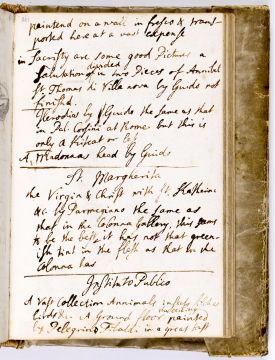 painted on a wall in fresco & trans-
ported here at a vast expense
in Sacristy are some good Pictures a
Salutation divided in two Pieces of Annibal
St Thomas di Villa nova by Guido not
finished.
Herodias by Guido the same as that
in Pal: Corsini at Rome but this is
only a
A Madonnas head by Guido
St. Margherita
the Virgin & Christ with St. Katherine
&c by Parmegiano the same as
that in the Colonna Gallery, this seems
to be the best it has not that green-
ish tint in the flesh as that in the
Colonna has
Instituto Publico
A Vast Collection Annimals
birds &c. A ground floor the ceiling painted
by Pelegrino Tibaldi in a great